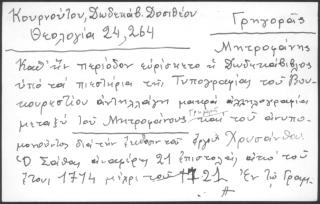 Κουρνούτου, Δωδεκάβ. Δοσιθέου
Θεολογία 24, 264
Γρηγορᾶς
Μητροφάνης
Καθ' ἣν περίοδον εὑρίσκετο ἡ Δωδεκάβιβλος
ὑπὸ τὰ πιεστήρια τῆς Τυπογραφίας τοῦ Βου-
κουρεστίου ἀντηλλάγη μακρά ἀλληλογραφία
μεταξὺ τοῦ Μητροφάνους Γρηγορᾶ καὶ τοῦ ἀνυπο-
μονοῦντος διὰ τὴν ἔκδοσιν τοῦ ἔργου Χρυσάνθου.
Ὁ Σάθας ἀναφέρει 21 ἐπιστολάς ἀπό τοῦ
ἔτους 1714 μέχρι τοῦ 1721. Ἐν τῷ Γραμ-